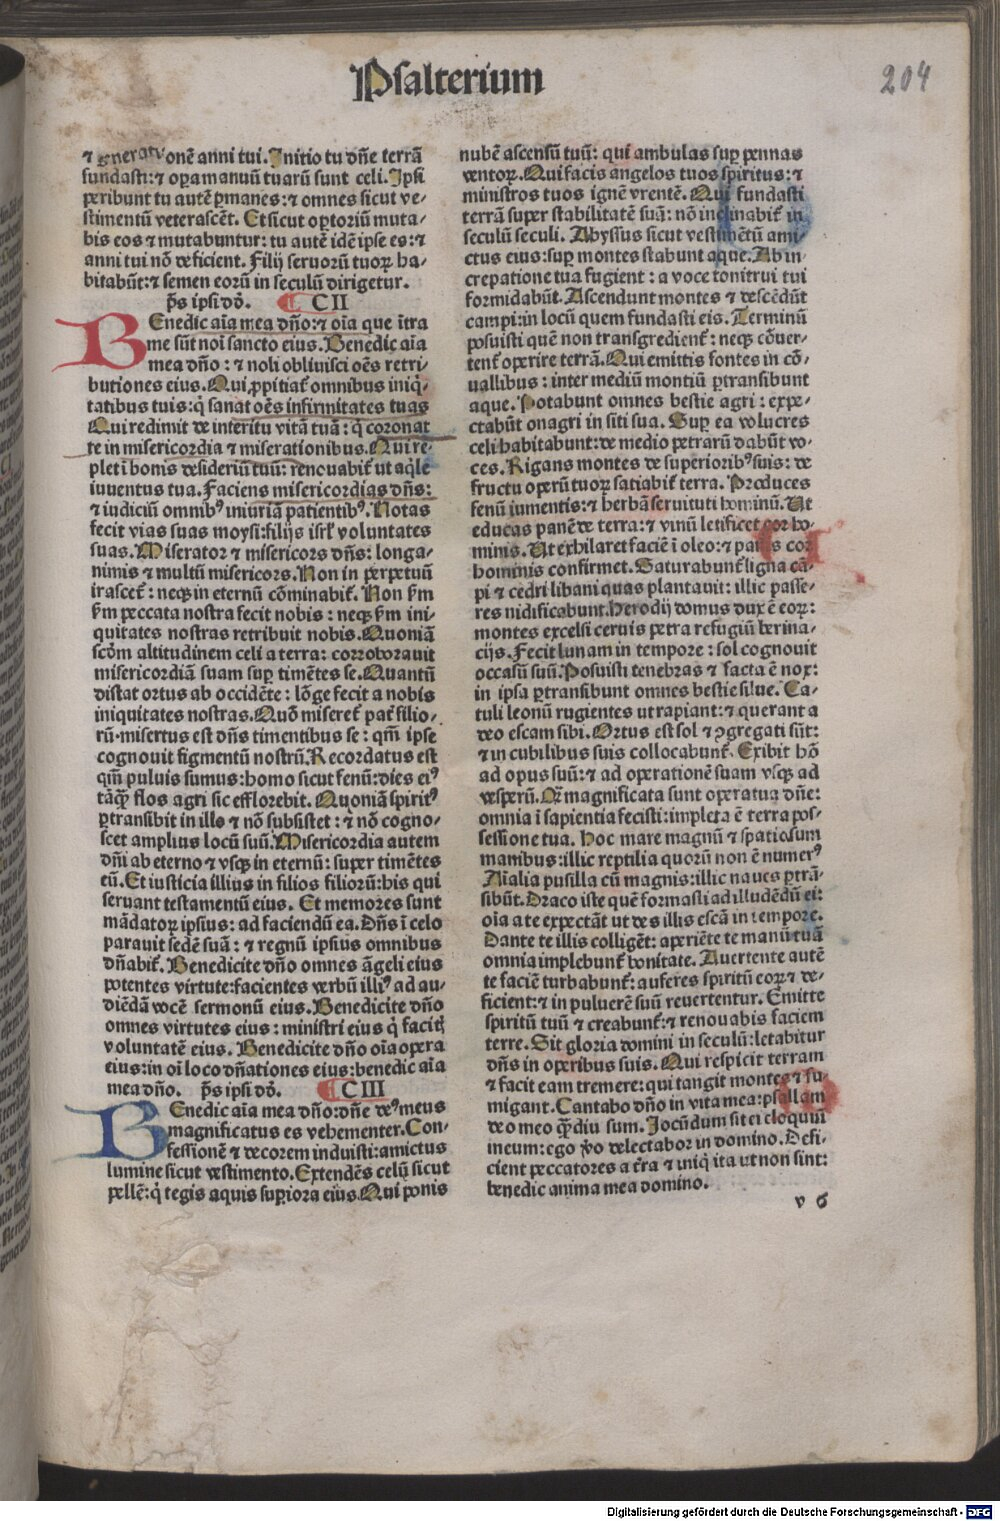 Psalterium
204
⁊ gneratyonē anni tui. Initio tu dñe terrā
fundasti: ⁊ oꝑa manuū tuarū sunt celi. Ipsi
peribunt tu autē ꝑmanes: ⁊ omnes sicut ve-
stimentū veterascēt. Et sicut oꝑtoriū muta-
bis eos ⁊ mutabuntur: tu autē idē ipse es: ⁊
anni tui nō deficient. Filij seruorū tuoꝝ ha-
bitabūt: ⁊ semen eorū in seculū dirigetur.
p̄s ipsi dd̄. CII
Benedic aīa mea dño: ⁊ oīa que ītra
me sūt noī sancto eius. Benedic aīa
mea dño : ⁊ noli obliuisci oēs retri-
butiones eius. Qui ꝓpitiat᷑ omnibus iniq̇-
tatibus tuis: q̇ sanat oēs infirmitates tuas
Qui redimit de interitu vitā tuā: q̇ coronat
te in misericordia ⁊ miserationibus. Qui re-
plet ī bonis desideriū tuū: renouabit᷑ ut aq̇le
iuuentus tua. Faciens misericordias dñs:
⁊ iudiciū omnibꝰ iniuriā patientibꝰ. Notas
fecit vias suas moysi: filijs isrl̕ voluntates
suas. Miserator ⁊ misericors dñs: longa-
nimis ⁊ multū misericors. Non in perpetuū
irascet᷑: neqꝫ in eternū cōminabit᷑. Non s̄m
s̄m peccata nostra fecit nobis : neqꝫ s̄m ini-
quitates nostras retribuit nobis. Quoniā
scd̄m altitudinem celi a terra: corroborauit
misericordiā suam suꝑ timētes se. Quantū
distat ortus ab occidēte: lōge fecit a nobis
iniquitates nostras. Quō miseret᷑ pat᷑ filio-
rū misertus est dñs timentibus se : qm̄ ipse
cognouit figmentū nostrū. Recordatus est
qm̄ puluis sumus: homo sicut fenū: dies eiꝰ
tāqꝫ̄ flos agri sic efflorebit. Quoniā spiritꝰ
ꝑtransibit in illo ⁊ nō subsistet : ⁊ nō cogno-
scet amplius locū suū. Misericordia autem
dñi ab eterno ⁊ vsqꝫ in eternū: super timētes
eū. Et iusticia illius in filios filiorū: his qui
seruant testamentū eius. Et memores sunt
mādatoꝝ ipsius: ad faciendū ea. Dñs ī celo
parauit sedē suā: ⁊ regnū ipsius omnibus
dñabit᷑. Benedicite dño omnes āgeli eius
potentes virtute: facientes verbū illiꝰ ad au-
diēdā vocē sermonū eius. Benedicite dño
omnes virtutes eius : ministri eius q̇ facitꝭ
voluntatē eius. Benedicite dño oīa opera
eius: in oī loco dñationes eius: benedic aīa
mea dño. p̄s ipsi dd̄. CIII
Benedic aīa mea dño: dñe deꝰ meus
magnificatus es vehementer. Con-
fessionē ⁊ decorem induisti: amictus
lumine sicut vestimento. Extendēs celū sicut
pellē: q̇ tegis aquis suꝑiora eius. Qui ponis
nubē ascensū tuū: qui ambulas suꝑ pennas
ventoꝝ. Qui facis angelos tuos spiritus: ⁊
ministros tuos ignē vrentē. Qui fundasti
terrā super stabilitatē suā: nō inclinabit᷑ in
seculū seculi. Abyssus sicut vestimētū ami-
ctus eius: suꝑ montes stabunt aque. Ab in-
crepatione tua fugient : a voce tonitrui tui
formidabūt. Ascendunt montes ⁊ descēdūt
campi: in locū quem fundasti eis. Terminū
posuisti quē non transgredient᷑ : neqꝫ cōuer-
tent᷑ operire terrā. Qui emittis fontes in cō-
uallibus : inter mediū montiū ꝑtransibunt
aque. Potabunt omnes bestie agri : expe-
ctabūt onagri in siti sua. Suꝑ ea volucres
celi habitabunt: de medio petrarū dabūt vo-
ces. Rigans montes de superioribꝰ suis: de
fructu operū tuoꝝ satiabit᷑ terra. Producens
fenū iumentis: ⁊ herbā seruituti hominū. Ut
educas panē de terra: ⁊ vinū letificet cor ho-
minis. Ut exhilaret faciē ī oleo: ⁊ panis cor
hominis confirmet. Saturabunt᷑ ligna cā-
pi ⁊ cedri libani quas plantauit: illic passe-
res nidificabunt. Herodij domus dux ē eoꝝ:
montes excelsi ceruis petra refugiū herina-
cijs. Fecit lunam in tempore : sol cognouit
occasū suū. Posuisti tenebras ⁊ facta ē nox:
in ipsa ꝑtransibunt omnes bestie silue. Ca-
tuli leonū rugientes ut rapiant: ⁊ querant a
deo escam sibi. Ortus est sol ⁊ ꝯgregati sūt:
⁊ in cubilibus suis collocabunt᷑. Exibit hō
ad opus suū: ⁊ ad operationē suam vsqꝫ ad
vesperū. Q̄ magnificata sunt opera tua dñe:
omnia ī sapientia fecisti: impleta ē terra pos-
sessione tua. Hoc mare magnū ⁊ spatiosum
manibus: illic reptilia quorū non ē numerꝰ
Aīalia pusilla cū magnis: illic naues ꝑtrā-
sibūt. Draco iste quē formasti ad illudēdū ei:
oīa a te expectāt ut des illis escā in tempore.
Dante te illis colligēt: aperiēte te manū tuā
omnia implebunt᷑ bonitate. Auertente autē
te faciē turbabunt᷑: auferes spiritū eoꝝ ⁊ de-
ficient: ⁊ in puluerē suū reuertentur. Emitte
spiritū tuū ⁊ creabunt᷑: ⁊ renouabis faciem
terre. Sit gloria domini in seculū: letabitur
dñs in operibus suis. Qui respicit terram
⁊ facit eam tremere: qui tangit montes ⁊ fu-
migant. Cantabo dño in vita mea: psallam
deo meo qꝫ̄diu sum. Jocūdum sit ei eloquiū
meum: ego ꝟo delectabor in domino. Defi-
cient peccatores a t̄ra ⁊ iniq̇ ita ut non sint:
benedic anima mea domino.
v 6
Digitalisierung gefördert durch die Deutsche Forschungsgemeinschaft - DFG